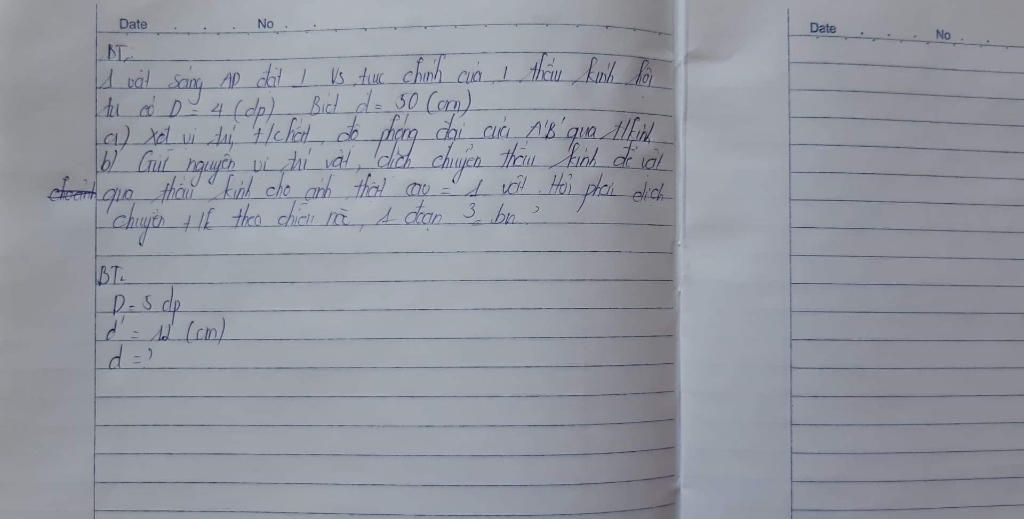 Date No
Date No
BT:
1 vật sáng AB đặt ⊥ vs trục chính của 1 thấu kính hội
tụ có D = 4 (dp) Biết d = 50 (cm)
a) Xđ vị trí, t/chất, độ phóng đại của A'B' qua t/kính
b) Giữ nguyên vị trí vật, dịch chuyển thấu kính để vật
qua thấu kính cho ảnh thật cao = vật. Hỏi phải dịch
chuyển TK theo chiều nào, 1 đoạn = bn?
BT:
D = 5 dp
d' = (cm)
d = ?